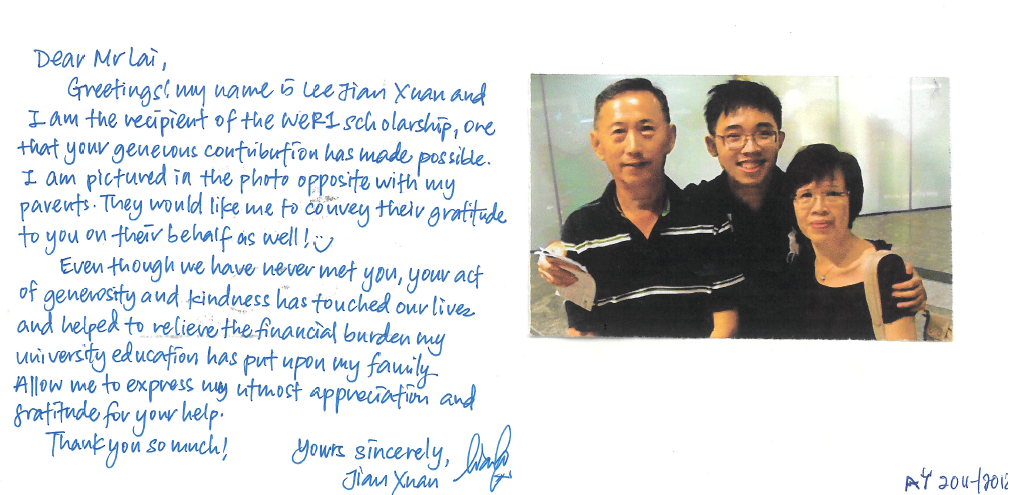 Dear Mr Lai,
Greetings! my name is Lee Jian Xuan and
I am the recipient of the WeR1 scholarship, one
that your generous contribution has made possible.
I am pictured in the photo opposite with my
parents. They would like me to convey their gratitude
to you on their behalf as well!
Even though we have never met you, your act
of generosity and kindness has touched our lives
and helped to relieve the financial burden my
university education has put upon my family
Allow me to express my utmost appreciation and
gratitude for your help.
Thank you so much!
Yours sincerely,
Jian Xuan
AY 2011/2012